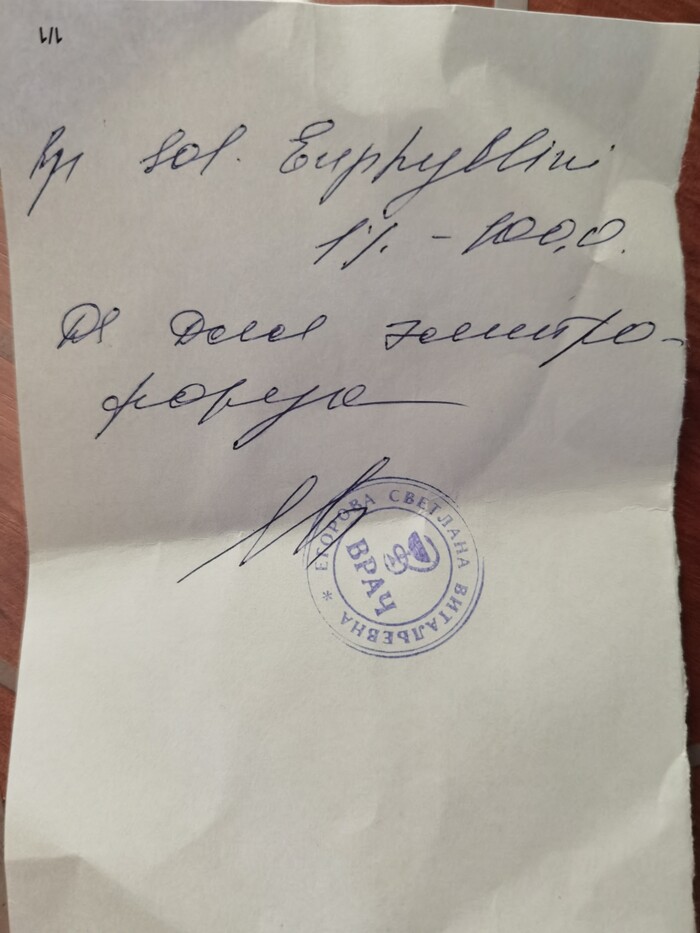 1/1
Rp: Sol. Euphyllini
1% - 100,0.
DS Для электро-
фореза
ЕГОРОВА СВЕТЛАНА ВИТАЛЬЕВНА *
ВРАЧ